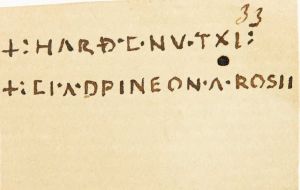 33
+:HARÐ·C·NV·TXI:
+:CI·A·DPINEON·A·ROSII